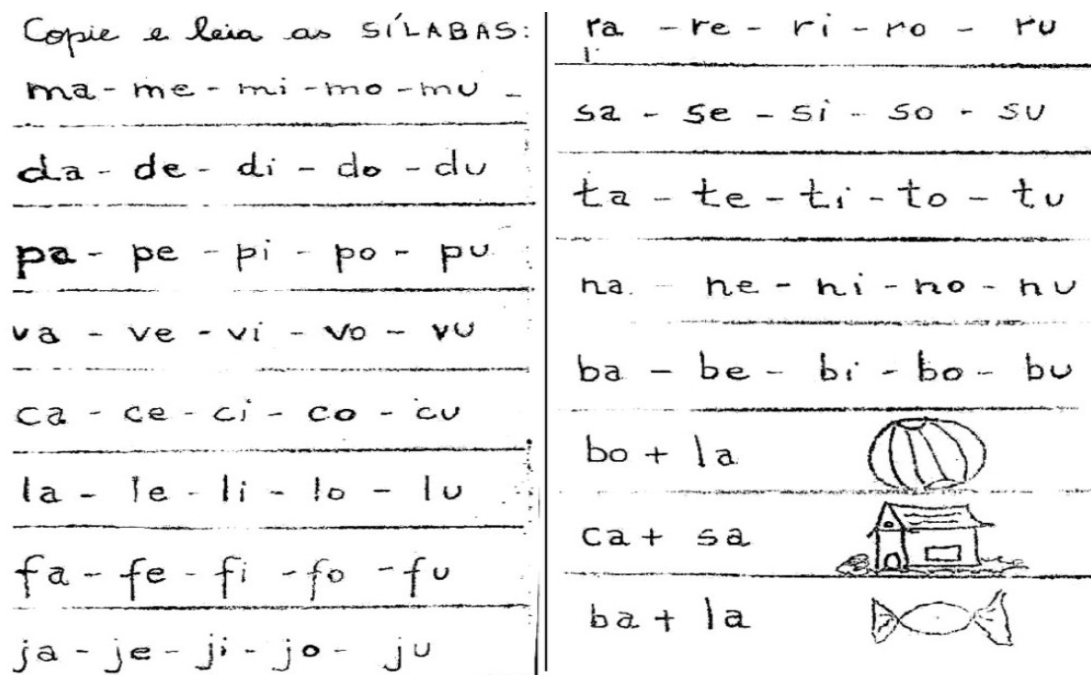 Copie e leia as SÍLABAS:
ma - me - mi - mo - mu -
da - de - di - do - du
pa - pe - pi - po - pu
va - ve - vi - vo - vu
ca - ce - ci - co - cu
la - le - li - lo - lu
fa - fe - fi - fo - fu
ja - je - ji - jo - ju
ra - re - ri - ro - ru
sa - se - si - so - su
ta - te - ti - to - tu
na - ne - ni - no - nu
ba - be - bi - bo - bu
bo + la
ca + sa
ba + la